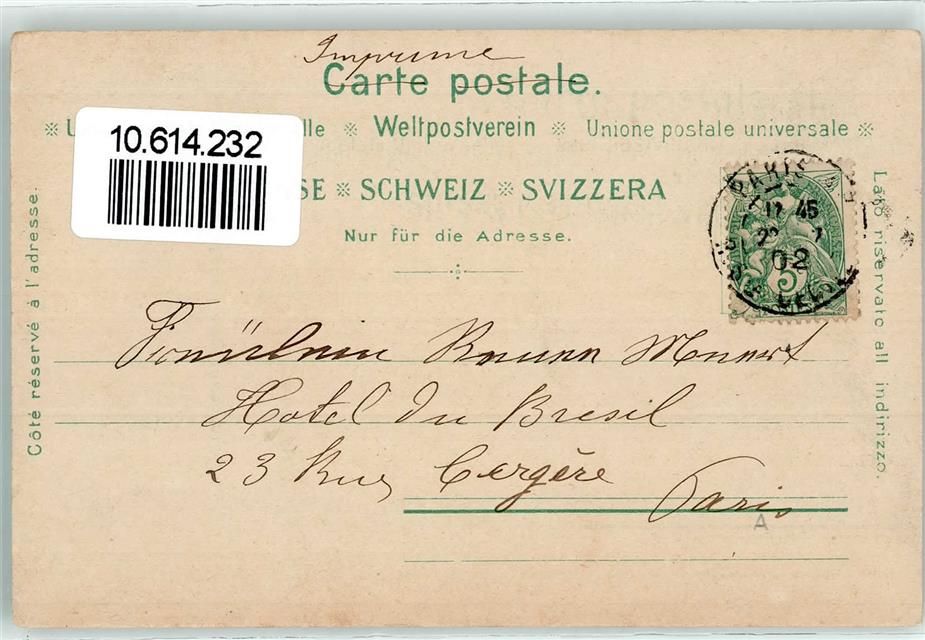 Imprimé
Carte postale.
10.614.232
※ U lle ※ Weltpostverein ※ Unione postale universale ※
SE ※ SCHWEIZ ※ SVIZZERA
Nur für die Adresse.
Côté réservé à l'adresse.
Lato riservato all indirizzo.
PARIS
12 45
02
5
Fräulein
Hotel Du Bresil
23 Rue Cergère
Paris
A